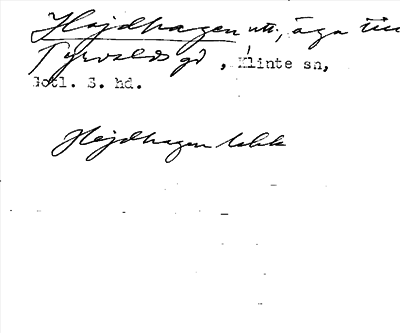 Hajdhagen utt., äga till
Tyrvalds gd, Klinte sn,
Gotl. S. hd.
Hajdhagen